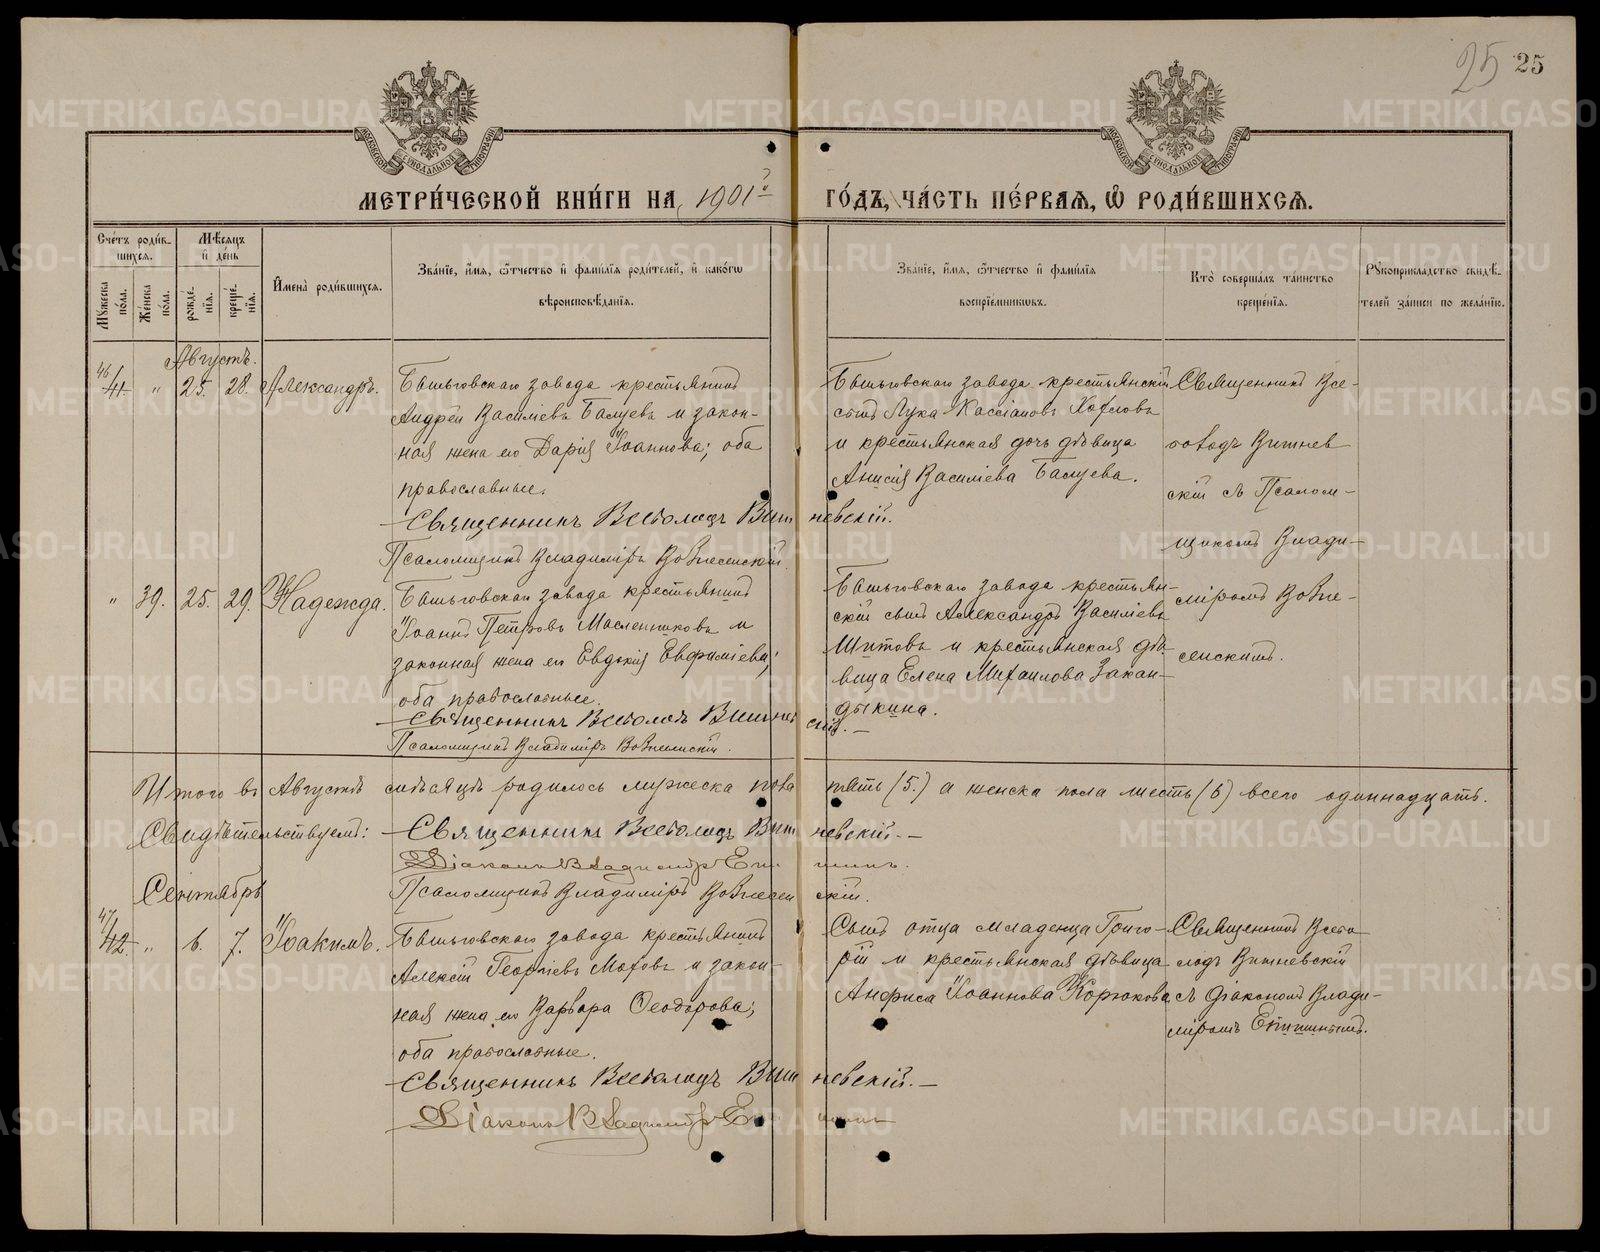 25 25
МЕТРИ́ЧЕСКОЙ КНИ́ГИ НА 1901й ГО́ДЪ, ЧА́СТЬ ПЕ́РВАѦ, Ѡ҆ РОДИ́ВШИХСѦ.
Сче́тъ роди́в-
шихсѧ.
Мꙋ́жеска по́ла.
Же́нска по́ла.
Мѣ́сѧцъ и҆ де́нь
рожде́-
нїѧ.
креще́-
нїѧ.
И҆мена̀ роди́вшихсѧ.
Зва́нїе, и҆́мѧ, ѻ҆́тчество и҆ фами́лїѧ роди́телей, и҆ како́гѡ
вѣроисповѣ́данїѧ.
Зва́нїе, и҆́мѧ, ѻ҆́тчество и҆ фами́лїѧ
воспрїе́мникѡвъ.
Кто̀ соверша́лъ та́инство
креще́нїѧ.
Рꙋкоприкла́дство свидѣ́-
телей за́писи по жела́нїю.
Августъ.
46
41. " 25. 28. Александръ.
Бытьговскаго завода крестьянинъ
Андрей Василіевъ Балуевъ и закон-
ная жена его Дарія Іоаннова; оба
православные.
Священникъ Всеволодъ Вишневскій.
Псаломщикъ Владиміръ Вознесенскій.
Бытьговскаго завода крестьянскій
сынъ Лука Кассіановъ Хохловъ
и крестьянская дочь дѣвица
Анисія Василіева Балуева.
Священникъ Все-
володъ Вишнев
скій съ Псалом-
щикомъ Влади-
міромъ Возне-
сенскимъ.
" 39. 25. 29. Надежда.
Бытьговскаго завода крестьянинъ
Іоаннъ Петровъ Масленниковъ и
законная жена его Евдокія Евфиміева;
оба православные.
Священникъ Всеволодъ Вишневскій.
Псаломщикъ Владиміръ Вознесенскій.
Бытьговскаго завода крестьян-
скій сынъ Александръ Василіевъ
Шитовъ и крестьянская дѣ-
вица Елена Михаилова Закан-
дыкина.
Итого въ Августѣ мѣсяцѣ родилось мужеска пола пять (5.) а женска пола шесть (6) всего одиннадцать.
Свидѣтельствуемъ: Священникъ Всеволодъ Вишневскій.
Діаконъ Владиміръ
Псаломщикъ Владиміръ Вознесенскій.
Сентябрь
47
42. " 6. 7. Іоакимъ.
Бытьговскаго завода крестьянинъ
Алексій Георгіевъ Моховъ и закон-
ная жена его Варвара Ѳеодорова;
оба православные.
Священникъ Всеволодъ Вишневскій.
Діаконъ Владиміръ
Сынъ отца младенца Григо-
рій и крестьянская дѣвица
Анфиса Іоаннова Корюкова
Священникъ Всево
лодъ Вишневскій
съ діакономъ Влади-
міромъ